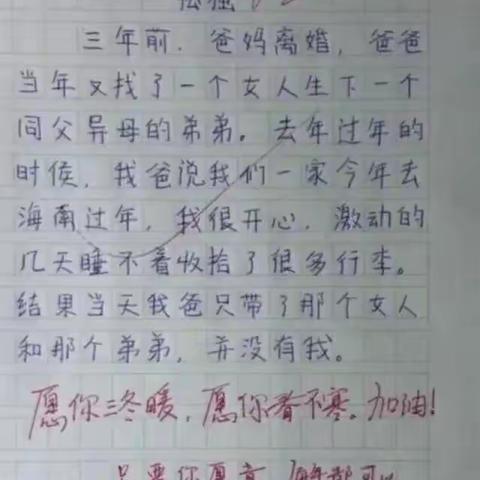 孤独
三年前，爸妈离婚，爸爸
当年又找了一个女人生下一个
同父异母的弟弟。去年过年的
时候，我爸说我们一家今年去
海南过年，我很开心，激动的
几天睡不着收拾了很多行李。
结果当天我爸只带了那个女人
和那个弟弟，并没有我。
愿你三冬暖，愿你春不寒。加油！
只要你愿意，